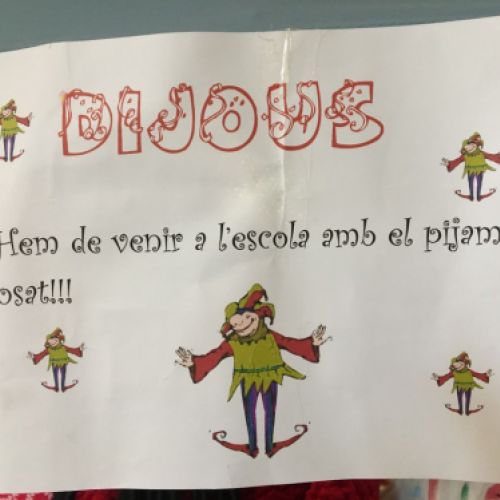 DIJOUS
Hem de venir a l'escola amb el pijam
osat!!!